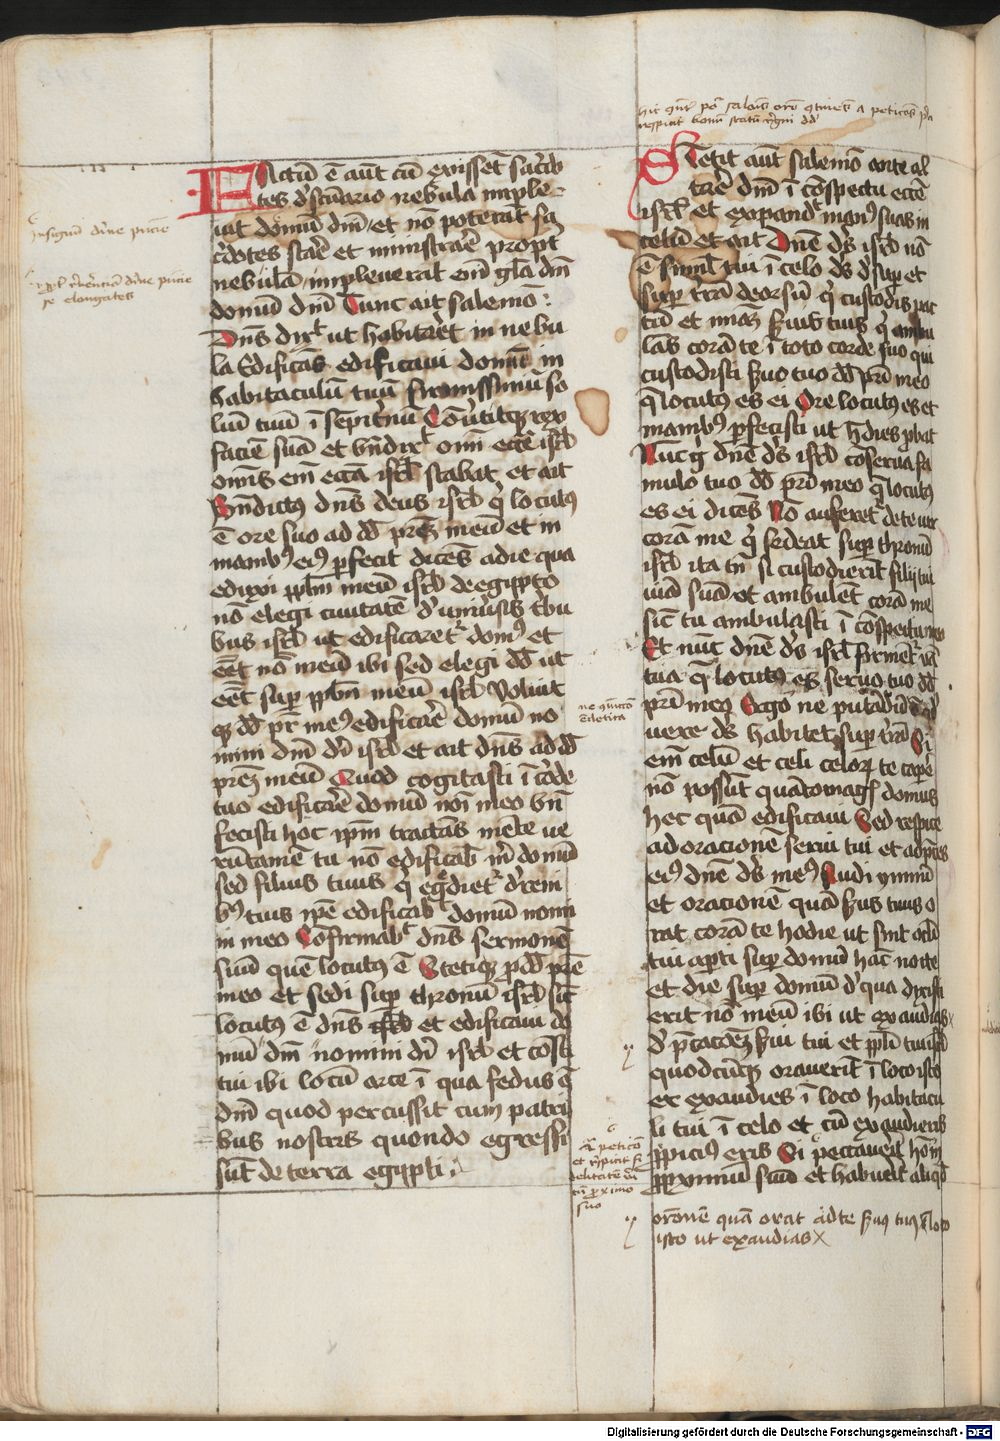 hic querit
Factū ē aūt cū exissēt sac̄d
tes d̕ sctūario nebula imple-
uit domū dm̄ et nō poterāt sa
c̄dotes stare et ministrare propt̕
nebulā impleuerat em̄ gl̄a dm̄
domū dm̄ Tunc ait salemō:
Dn̄s dix̕ ut habitaret in nebu
la Edificās edificaui domū in
habitaculū tuū firmissimū so
liū tuū ī sempit̕nū Cōu̕titq̕ rex
faciē suā et bn̄dix̕ om̄i ecc̄e isrl̕
omīs em̄ ecc̄a isrl̕ stabat et ait
Bn̄dictus dn̄s deus isrl̕ q̕ locutus
ē ore suo ad dd̄ prēm meū et in
manibus eius perfecit dicēs a die qua
eduxi pplm̄ meū isrl̕ de egipto
nō elegi ciuitatē d̕ uniu̕sis t̕bu
bus isrl̕ ut edificaret̕ domus et
eēt nō meū ibi sed elegi dd̄ ut
eēt super pplm̄ meū isrl̕ Voluit
q̕ dd̄ pr̄ meus edificare domū no
mini dm̄ di̕ isrl̕ et ait dn̄s ad dd̄
prēm meū Quod cogitasti ī corde
tuo edificare domū noī meo bn̄
fecisti hoc ip̄m tractās mēte ue
rūtamē tu nō edificab̕ m̕ domū
sed filius tuus q̕ egdiet̕ d̕ reni
bus tuis ip̄e edificab̕ domū nomi
ni meo Cōfirmab̕ dn̄s sermonē
suū quē locutus ē Stetiq̕ p̕ dd̄ prē
meo et sedi super thronū isrl̕ sic̄
locutus ē dn̄s et edificaui do
mū dm̄ nomini di̕ isrl̕ et cōsti
tui ibi locū arce ī qua fedus ē
dm̄ quod percussit cum patri
bus nostris quando egressi
sūt de terra egypti
Stetit aūt salemō ante al
tare dm̄ ī cōspectu ecc̄e
isrl̕ et expandit manus suas in
celū et ait Dn̄e ds̄ isrl̕ nō
ē simil̕ tui ī celo ds̄ d̕super et
super t̕rā deorsū q̕ custodis pac
tū et m̄iam s̕uis tuis q̕ ambu
lāt corā te ī toto corde suo qui
custodisti s̕uo tuo dd̄ pri̕ meo
q̄ locutus es ei Ore locutus es et
manibus perfecisti ut h̄ dies probat
Nūc g̕ dn̄e ds̄ isrl̕ cōserua fa
mulo tuo dd̄ pri̕ meo q̄ locutus
es ei dicēs Nō auferet̕ de te uir
corā me q̕ sedeat super thronū
isrl̕ ita tn̄ si custodierīt filij tui
uiā suā et ambulēt corā me
sic̄ tu ambulasti ī cōspectu meo
Et nūc dn̄e ds̄ isrl̕ firmet̕
tua q̄ locutus es seruo tuo dd̄
pri̕ meo Ergo ne putādū ē q̕
uere ds̄ habitet super t̕rā Si
em̄ celū et celi celoꝝ te cape̕
nō possūt quātomagꝭ domus
hec quā edificaui Sed respice
ad oracionē serui tui et ad pces
eius dn̄e ds̄ meus Audi ymnū
et oracionē quā s̕uus tuus o
rat corā te hodie ut sint ocli̕
tui apti super domū hāc nocte
et die super domū d̕ qua dixisti
erit nō meū ibi ut exaudias
d̕ p̄cacōēm s̕ui tui et ppl̄i tui isrl̕
quodcūq̕ orauerīt ī loco isto
et exaudies ī loco habitacu
li tui ī celo et cū exaudieris
p̕picius eris Si peccauerit hō ī
p̕ximū suū et habuerit aliq̕d
oronē quā orat ad te s̕uus tuus ī loco
isto ut exaudias
Digitalisierung gefördert durch die Deutsche Forschungsgemeinschaft - DFG